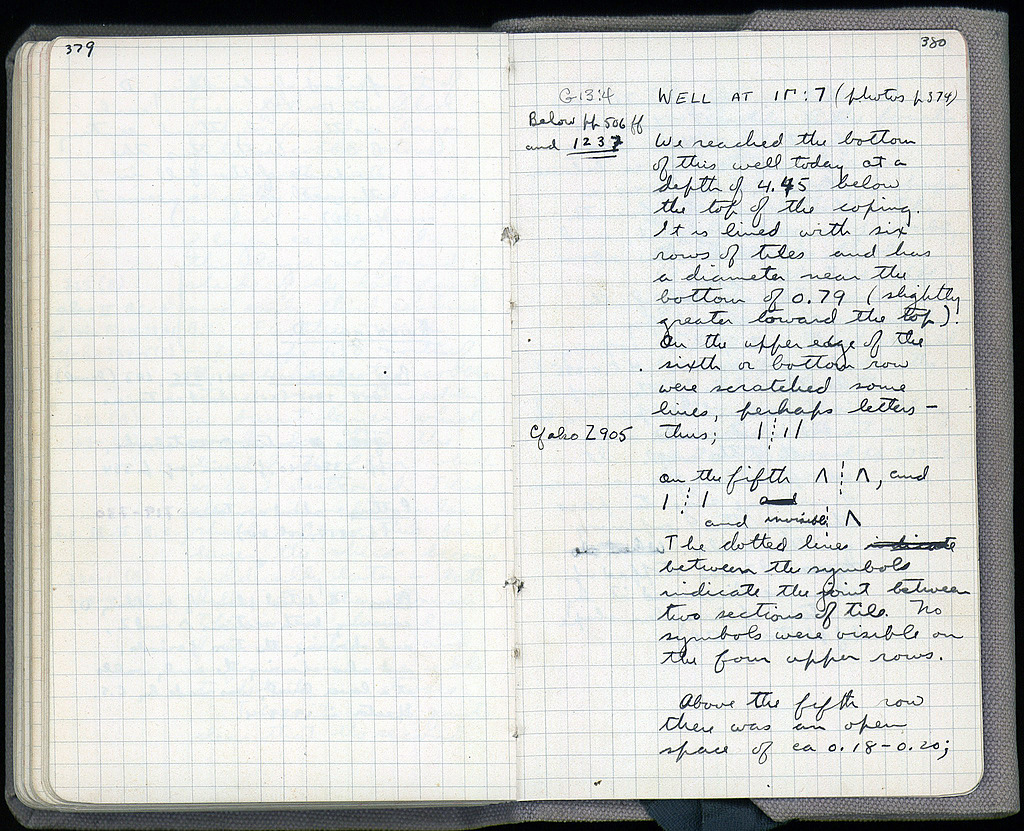 379
380
G13:4
WELL AT ΙΓ:7 (photos p374)
Below pp 506 ff
and 1237
We reached the bottom
of this well today at a
depth of 4.45 below
the top of the coping.
It is lined with six
rows of tiles and has
a diameter near the
bottom of 0.79 (slightly
greater toward the top).
On the upper edge of the
sixth or bottom row
were scratched some
lines, perhaps letters –
Cf also Z905
thus; I ⋮ I I
on the fifth Λ ⋮ Λ, and
I ⋮ I
and invisible ⋮ Λ
The dotted lines indicate
between the symbols
indicate the joint between
two sections of tile. No
symbols were visible on
the four upper rows.
Above the fifth row
there was an open
space of ca 0.18–0.20;